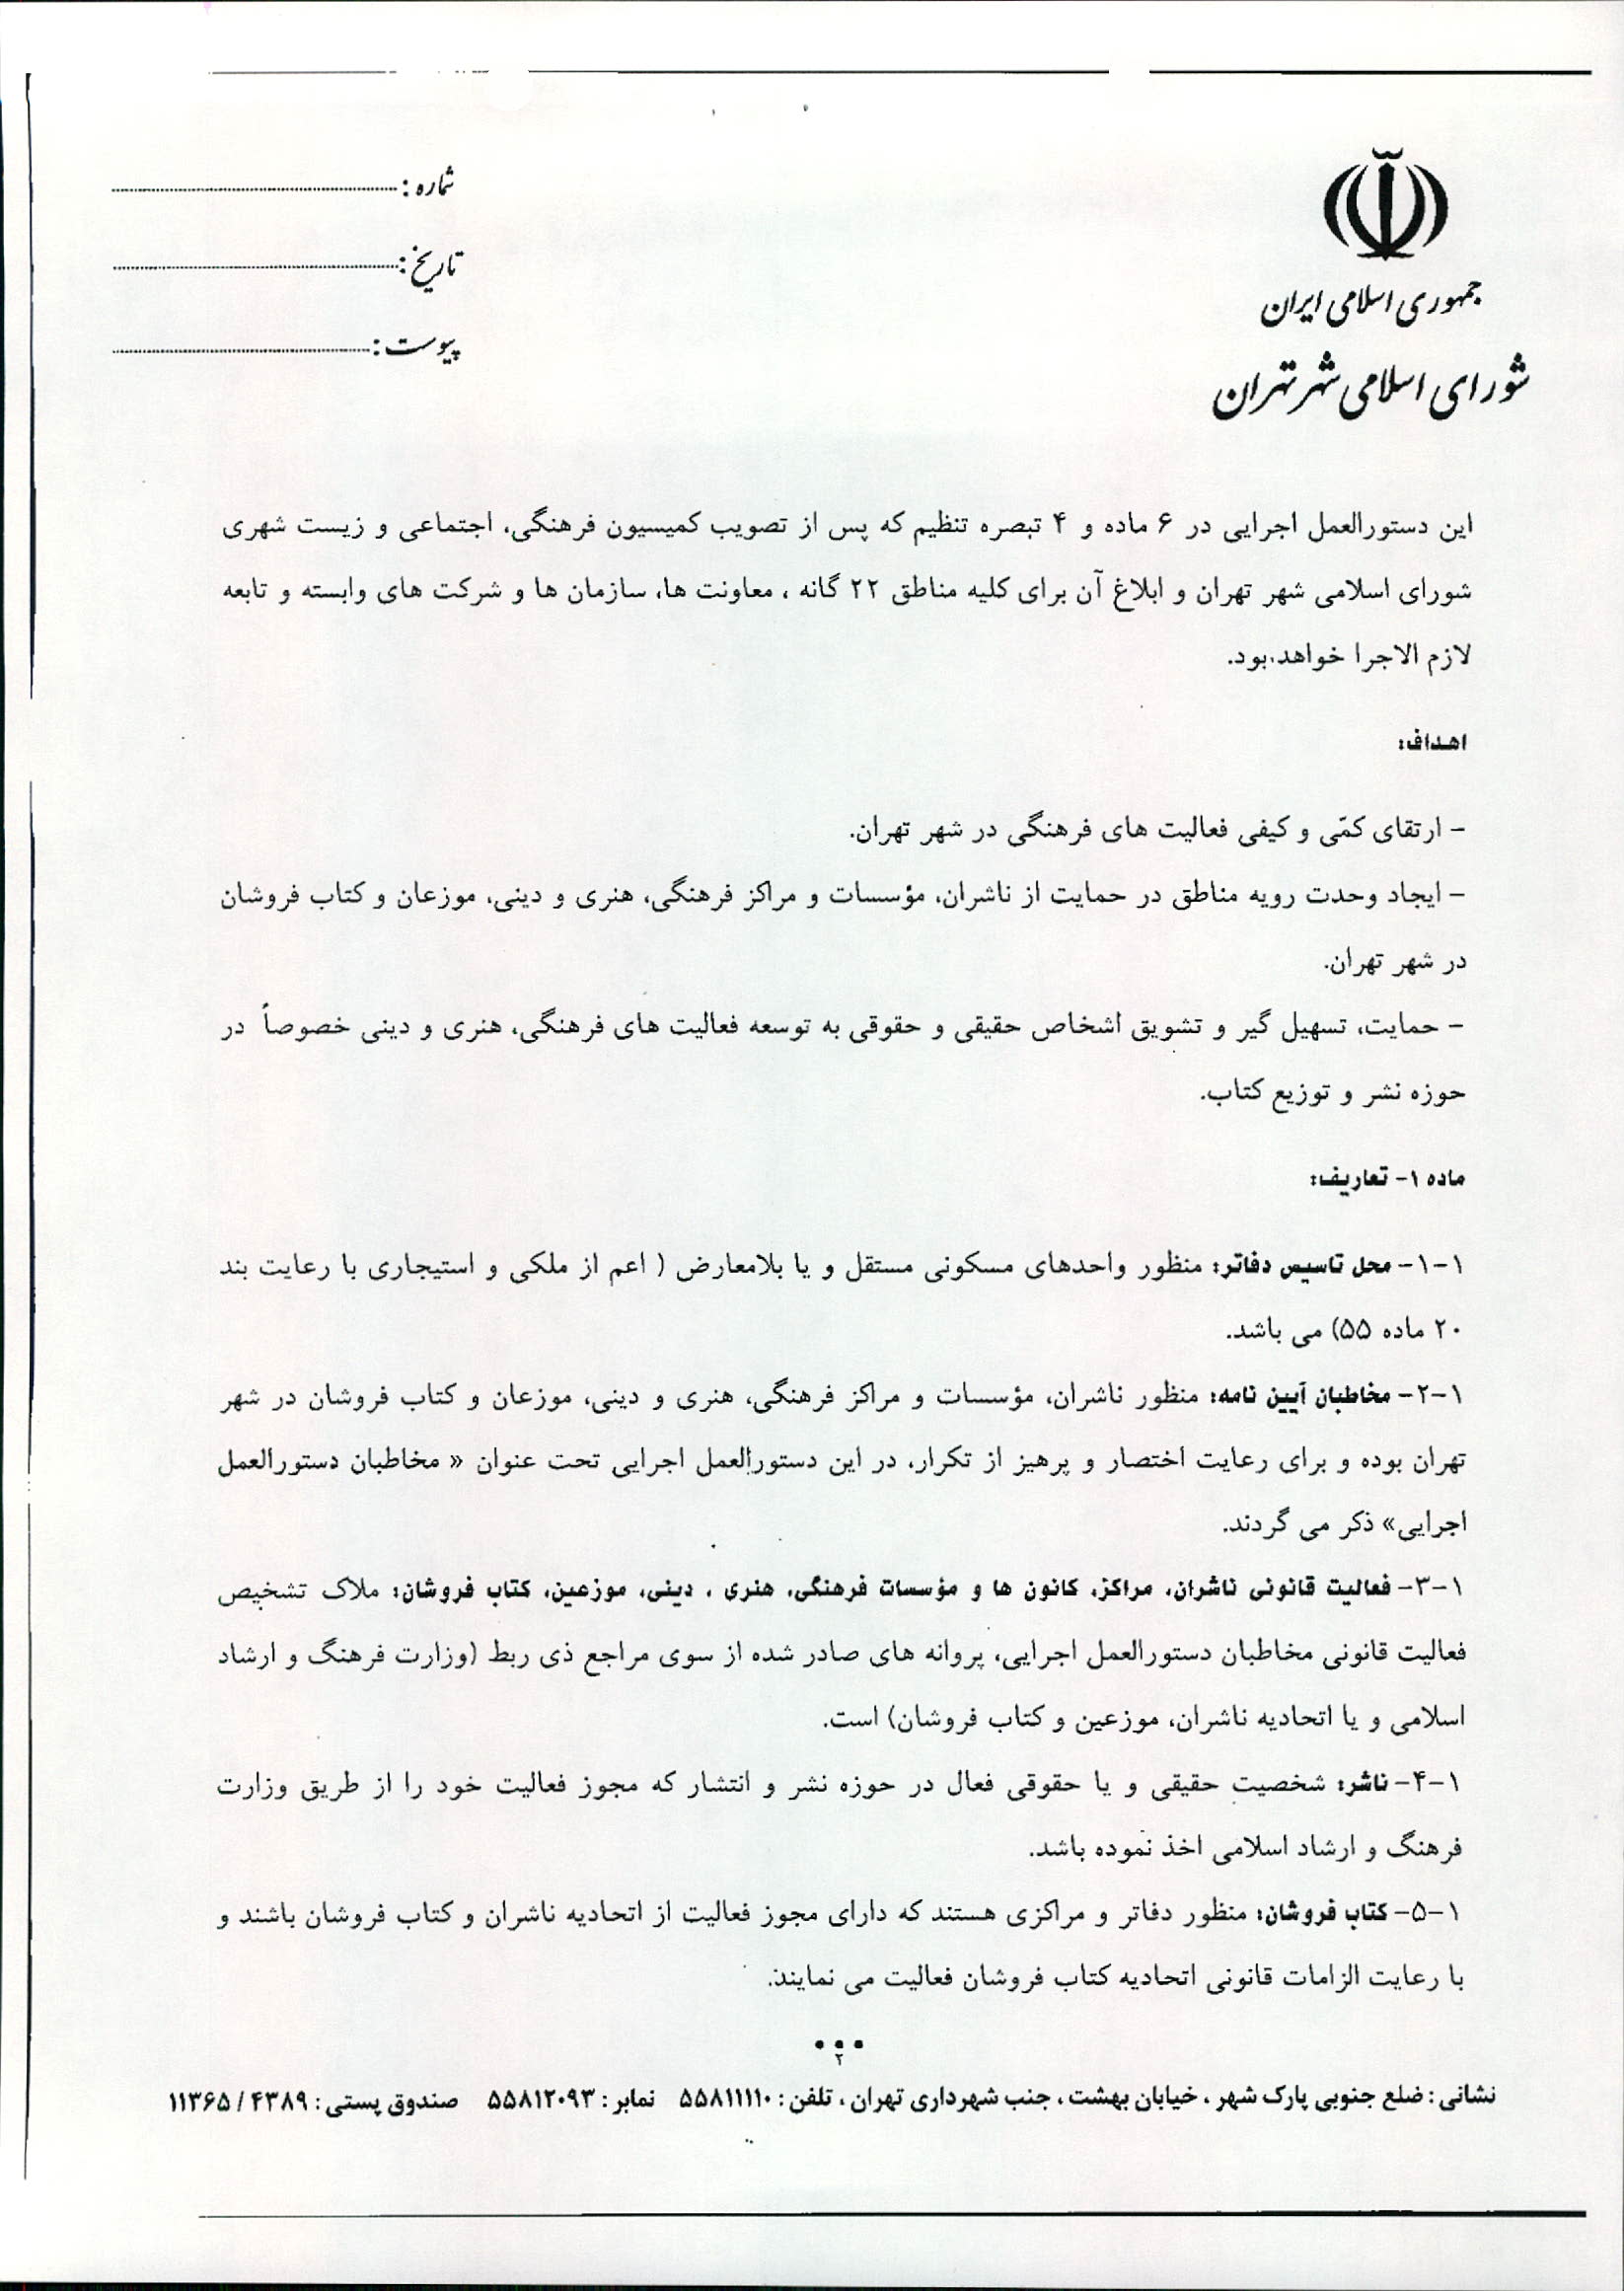 جمهوری اسلامی ایران
شورای اسلامی شهر تهران
شماره :
تاریخ :
پیوست :
این دستورالعمل اجرایی در ۶ ماده و ۴ تبصره تنظیم که پس از تصویب کمیسیون فرهنگی، اجتماعی و زیست شهری
شورای اسلامی شهر تهران و ابلاغ آن برای کلیه مناطق ۲۲ گانه ، معاونت ها، سازمان ها و شرکت های وابسته و تابعه
لازم الاجرا خواهد بود.
اهداف:
- ارتقای کمّی و کیفی فعالیت های فرهنگی در شهر تهران.
- ایجاد وحدت رویه مناطق در حمایت از ناشران، مؤسسات و مراکز فرهنگی، هنری و دینی، موزعان و کتاب فروشان
در شهر تهران.
- حمایت، تسهیل گیر و تشویق اشخاص حقیقی و حقوقی به توسعه فعالیت های فرهنگی، هنری و دینی خصوصاً در
حوزه نشر و توزیع کتاب.
ماده ۱- تعاریف:
۱-۱- محل تاسیس دفاتر: منظور واحدهای مسکونی مستقل و یا بلامعارض ( اعم از ملکی و استیجاری با رعایت بند
۲۰ ماده ۵۵) می باشد.
۱-۲- مخاطبان آیین نامه: منظور ناشران، مؤسسات و مراکز فرهنگی، هنری و دینی، موزعان و کتاب فروشان در شهر
تهران بوده و برای رعایت اختصار و پرهیز از تکرار، در این دستورالعمل اجرایی تحت عنوان « مخاطبان دستورالعمل
اجرایی» ذکر می گردند.
۱-۳- فعالیت قانونی ناشران، مراکز، کانون ها و مؤسسات فرهنگی، هنری ، دینی، موزعین، کتاب فروشان: ملاک تشخیص
فعالیت قانونی مخاطبان دستورالعمل اجرایی، پروانه های صادر شده از سوی مراجع ذی ربط (وزارت فرهنگ و ارشاد
اسلامی و یا اتحادیه ناشران، موزعین و کتاب فروشان) است.
۱-۴- ناشر: شخصیت حقیقی و یا حقوقی فعال در حوزه نشر و انتشار که مجوز فعالیت خود را از طریق وزارت
فرهنگ و ارشاد اسلامی اخذ نموده باشد.
۱-۵- کتاب فروشان: منظور دفاتر و مراکزی هستند که دارای مجوز فعالیت از اتحادیه ناشران و کتاب فروشان باشند و
با رعایت الزامات قانونی اتحادیه کتاب فروشان فعالیت می نمایند.
۲
نشانی : ضلع جنوبی پارک شهر ، خیابان بهشت ، جنب شهرداری تهران ، تلفن : ۵۵۸۱۱۱۱۰ نمابر : ۵۵۸۱۲۰۹۳ صندوق پستی : ۴۳۸۹ / ۱۱۳۶۵